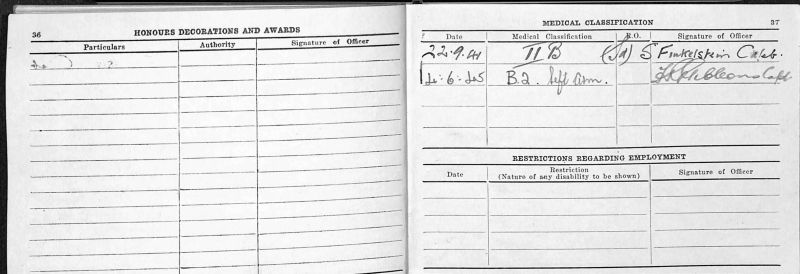 36
HONOURS DECORATIONS AND AWARDS
Particulars Authority Signature of Officer
MEDICAL CLASSIFICATION 37
Date Medical Classification R.O. Signature of Officer
22.9.41 II B (Sd) S Finkelstein
.6.45 B.2. left arm. Capt
RESTRICTIONS REGARDING EMPLOYMENT
Date Restriction Signature of Officer
(Nature of any disability to be shown)